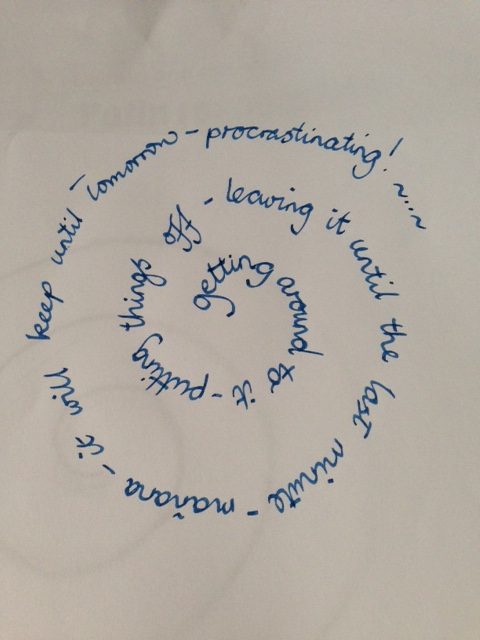 getting around to it - putting things off - leaving it until the last minute - mañana - it will keep until tomorrow - procrastinating! ~...~